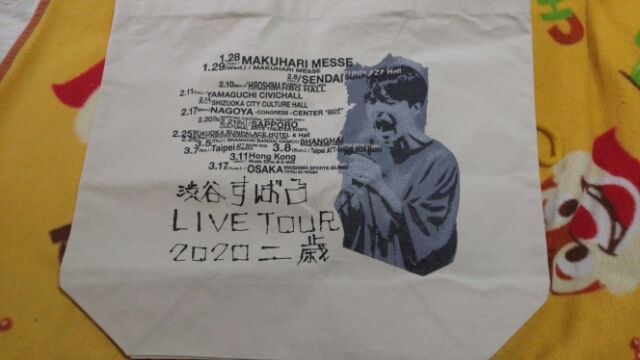 1.28 MAKUHARI MESSE
1.29 (Wed.) / MAKUHARI MESSE
2.6 SENDAI SUNPLAZA Hall
2.10 HIROSHIMA HALL
2.11 YAMAGUCHI CIVICHALL
SHIZUOKA CITY CULTURE HALL
2.17 NAGOYA -CONGRESS-CENTER
2.20
2.21 SAPPORO
2.25 FUKUOKA SUNPALACE HOTEL & Hall
3.5 SHANGHAI
3.7 Taipei 3.8 Taipei ATT SHOW BOX
3.11 Hong Kong
3.17 OSAKA MAISHIMA SPORTS ISLAND
渋谷すばる
LIVE TOUR
2020 二歳